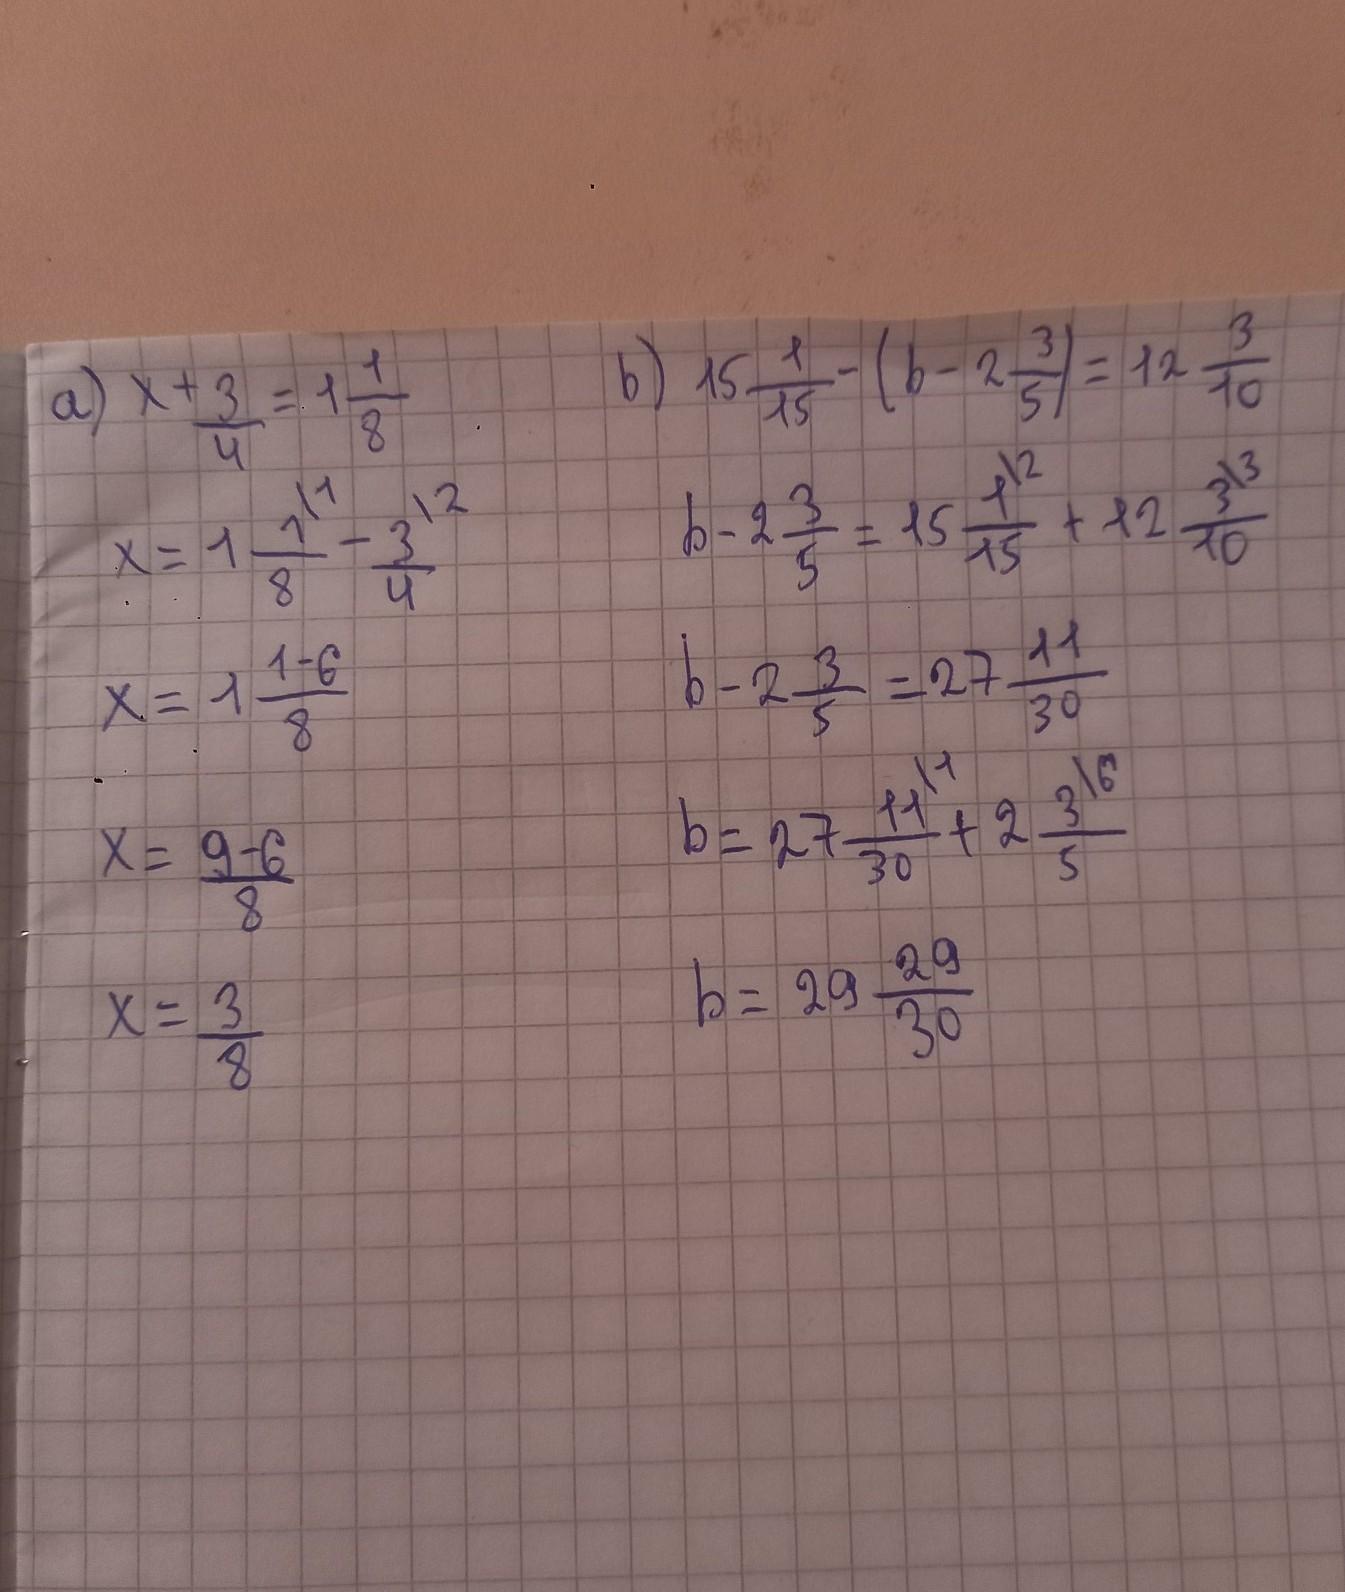 a) x + 3/4 = 1 1/8
x = 1 1\1/8 - 3\2/4
x = 1 1-6/8
x = 9-6/8
x = 3/8
b) 15 1/15 - (b - 2 3/5) = 12 3/10
b - 2 3/5 = 15 1\2/15 + 12 3\3/10
b - 2 3/5 = 27 11/30
b = 27 11\1/30 + 2 3\6/5
b = 29 29/30